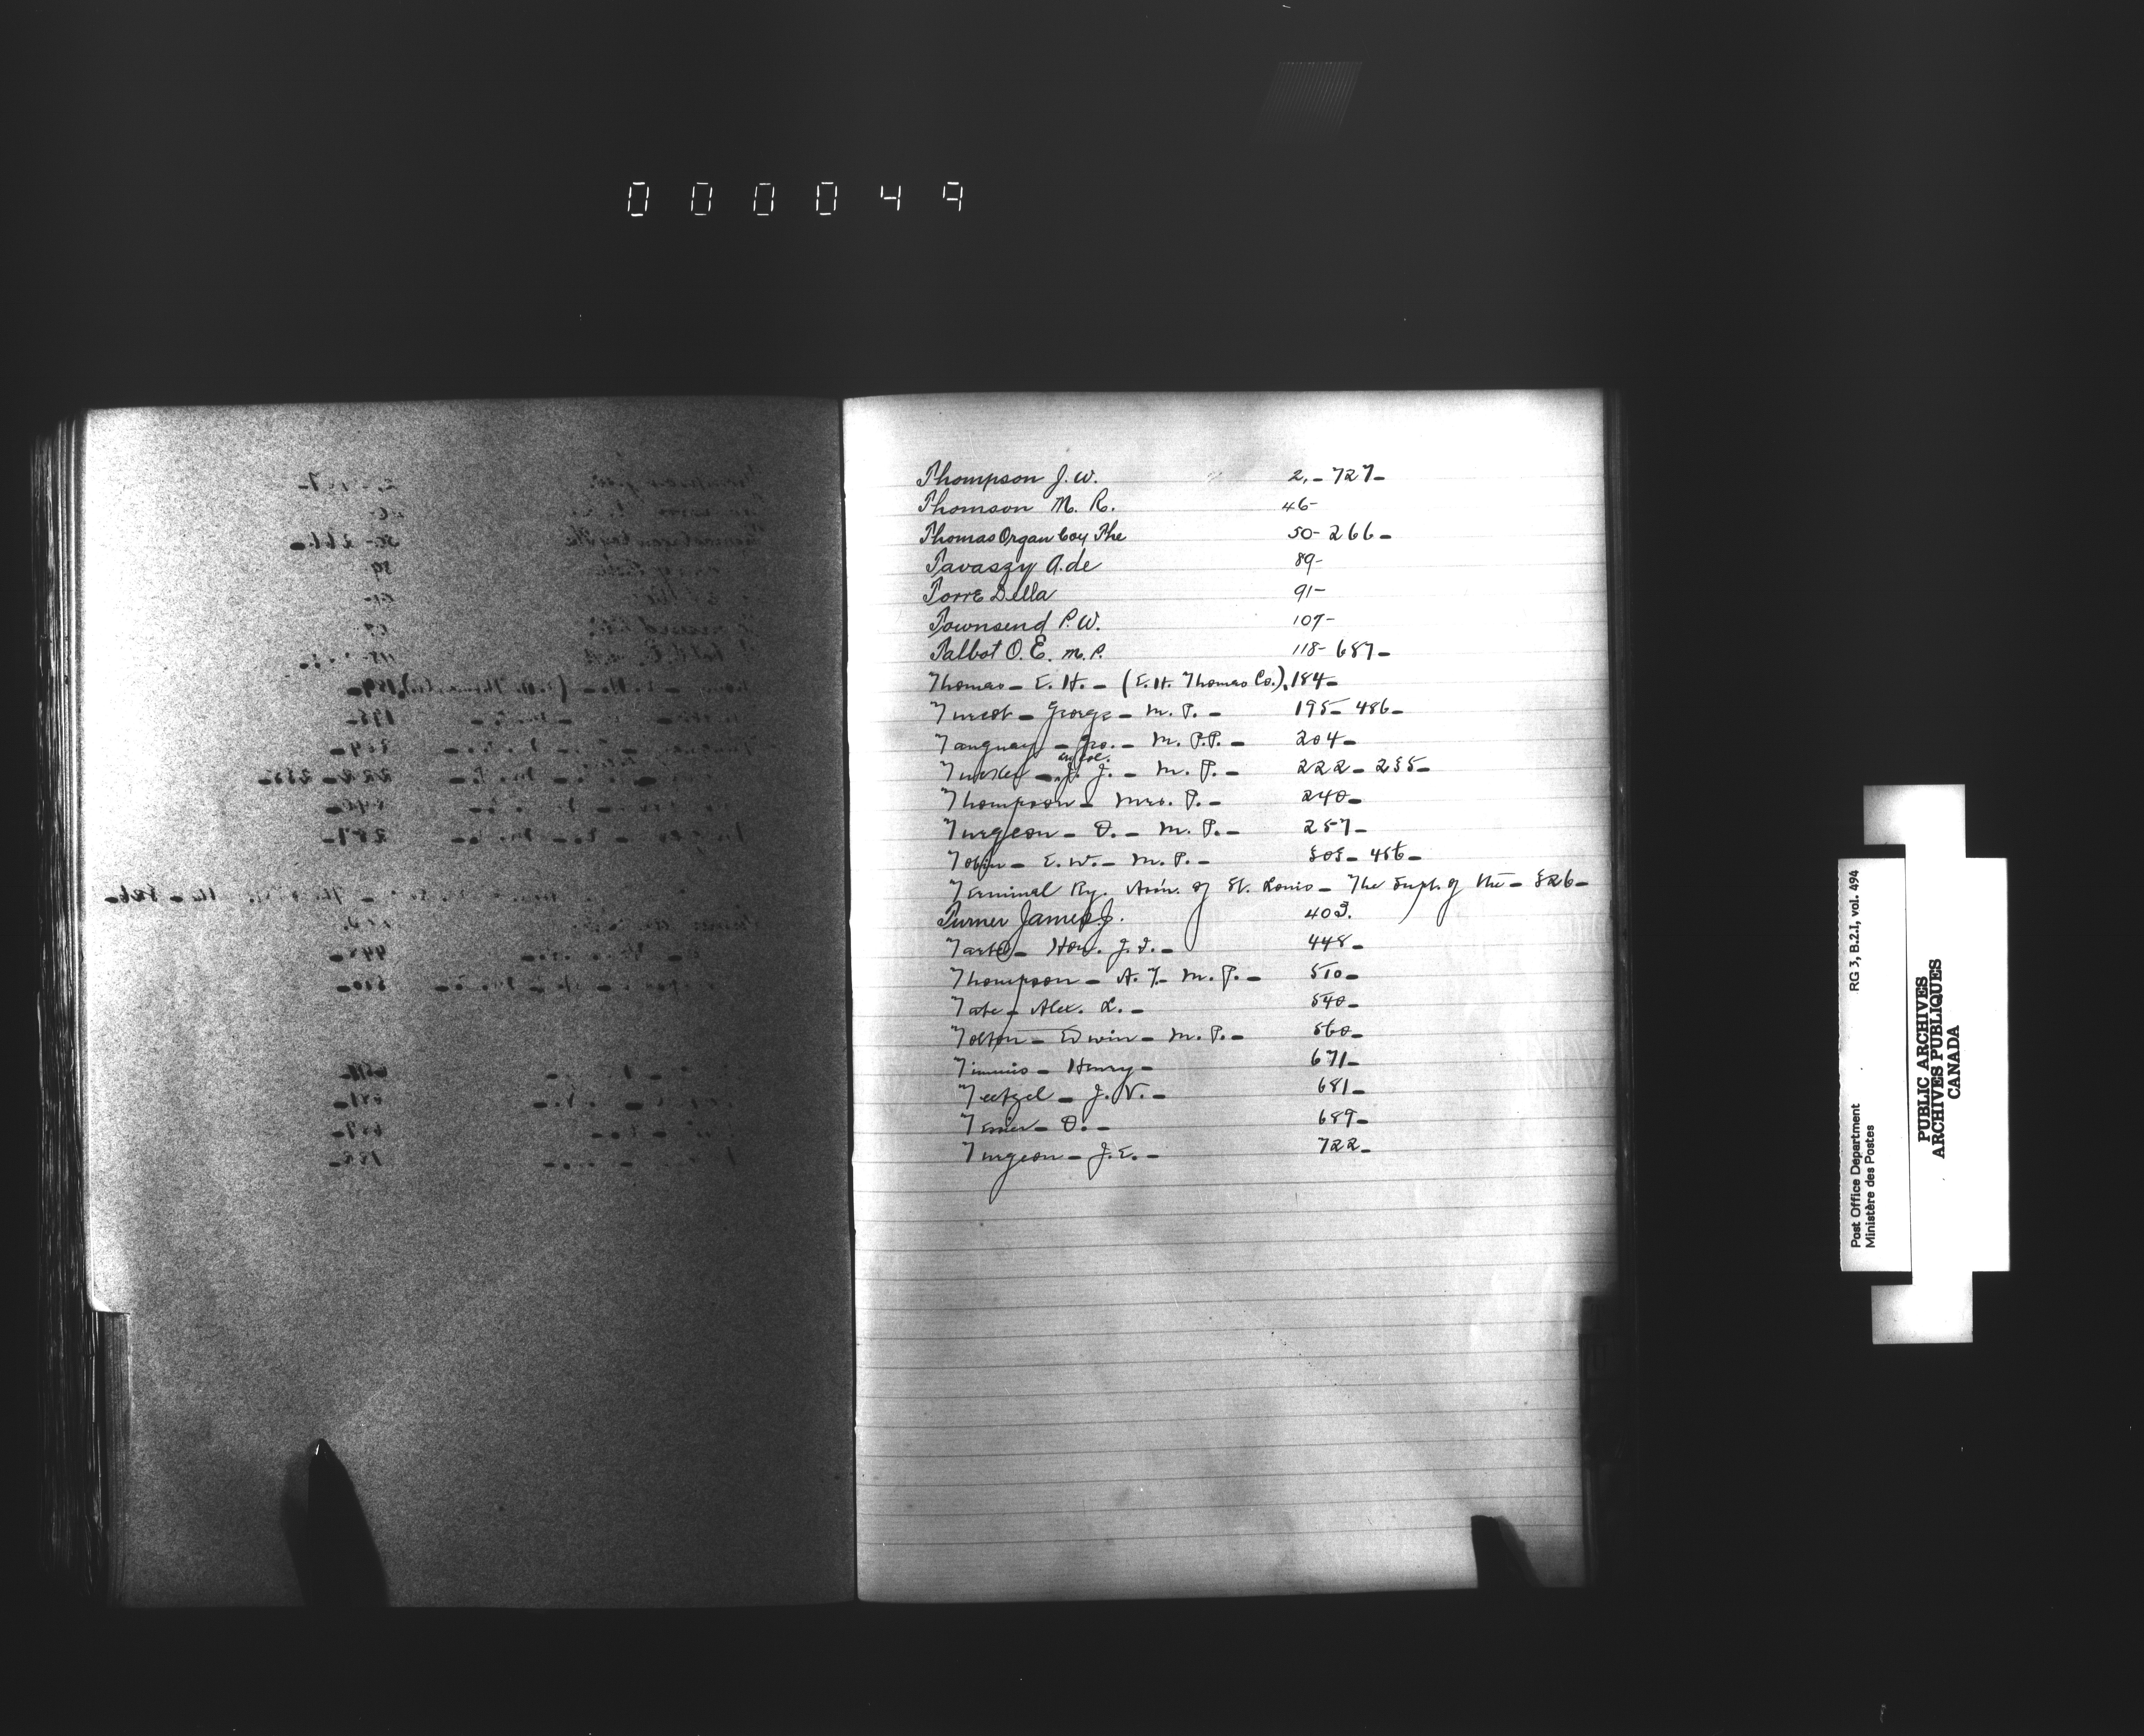 000049
Thompson J. W. 2,- 727-
Thomson M. R. 46-
Thomas Organ Coy The 50- 266-
Tavaszy A. de 89-
Torre Della 91-
Townsend P. W. 107-
Talbot O. E. M. P. 118- 687-
Thomas- E. H.- (E. H. Thomas Co.), 184-
Turcot- George- M. P.- 195- 486-
Tanguay- Geo.- M. P. P.- 204-
J. J.- M. P.- 222- 255-
Thompson- Mrs. P.- 240-
Turgeon- O.- M. P.- 257-
Tobin- E. W.- M. P.- 305- 456-
Terminal Ry. Assn. of St. Louis- The Supt. of the- 326-
Turner James J. 403.
Tarte- Hon. J. I.- 448-
Thompson- A. T. M. P.- 510-
Tate- Alex. L.- 540-
Tolton- Edwin- M. P.- 560-
Timmis- Henry- 671-
Teetzel- J. V.- 681-
Tessier- O.- 689-
Turgeon- J. E.- 722-
RG 3, B.2.I, vol. 494
Post Office Department
Ministère des Postes
PUBLIC ARCHIVES
ARCHIVES PUBLIQUES
CANADA